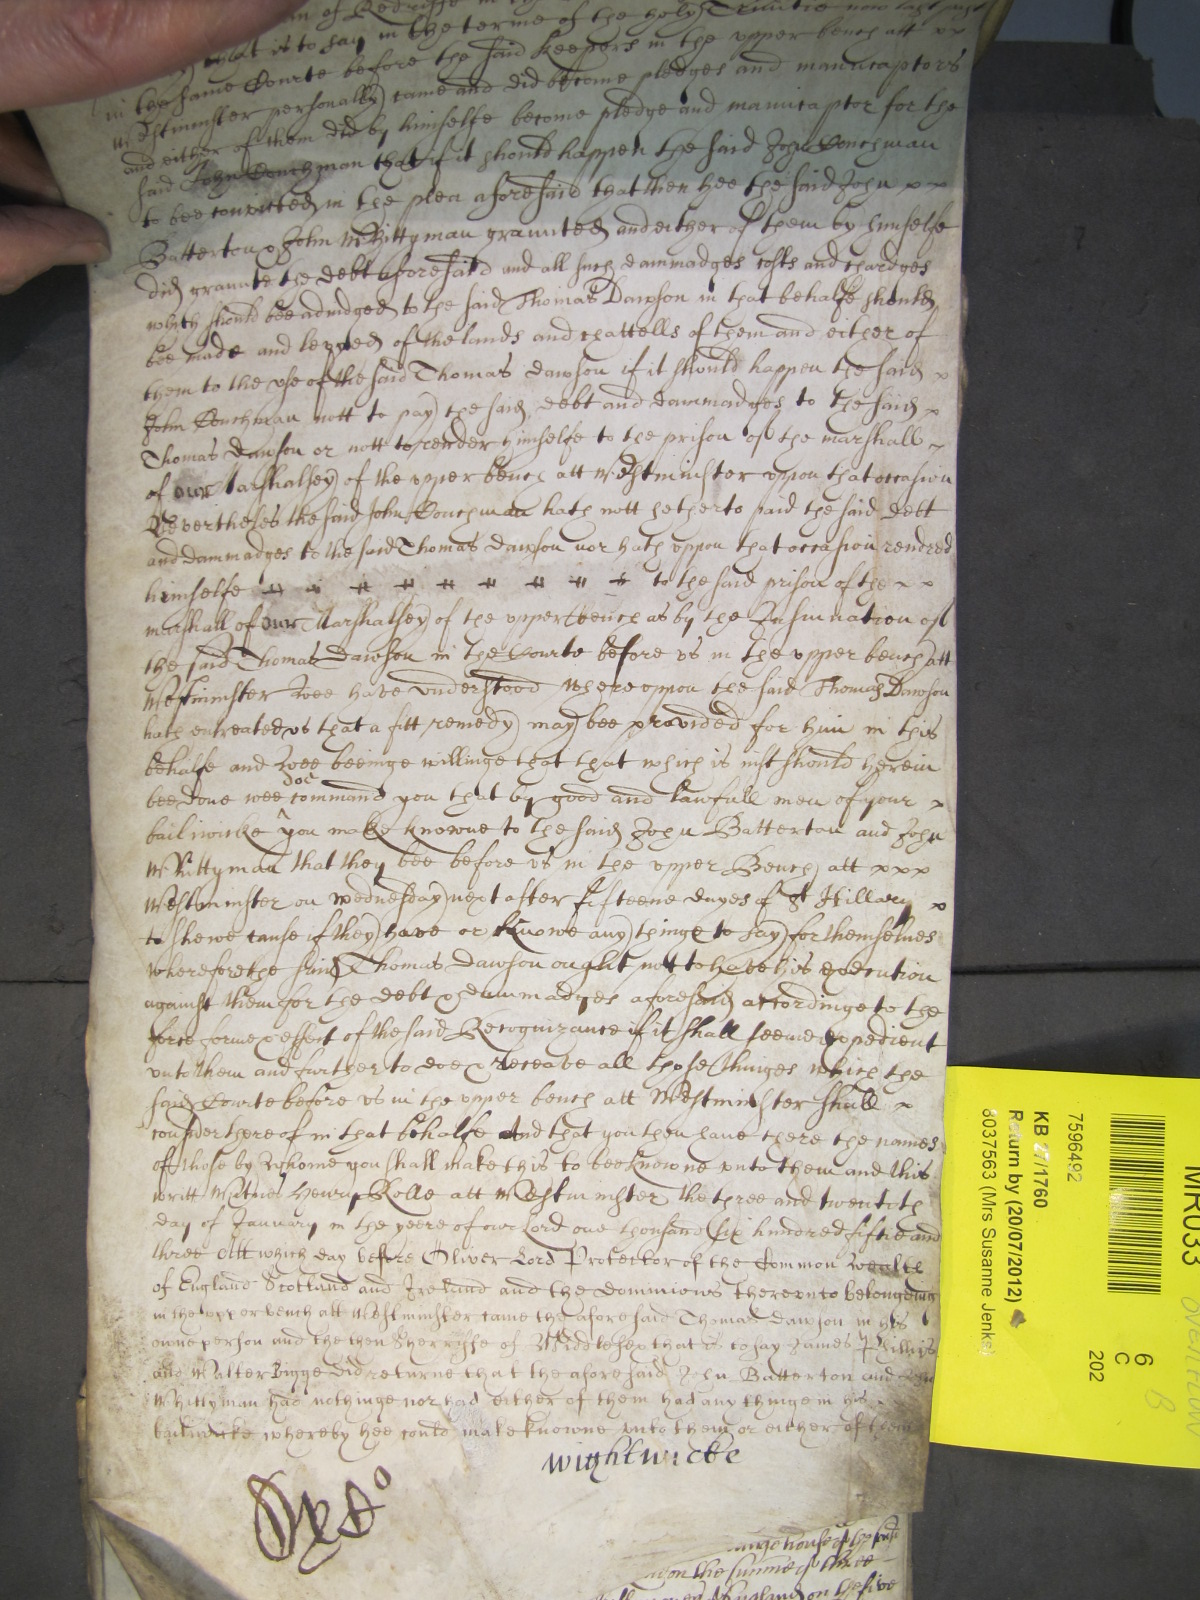 that is to say in the terme of the holy Trinitie now last past
in the same Courte before the said keepers in the vpper bench att x x
Westminster personally came and did become pledges and manucaptors
and either of them did by himselfe become pledge and manucaptor for the
said John Couchman that if it should happen the said John Couchman
to bee convicted in the plea aforesaid that then hee the said John x x
Batterton & John Whittyman graunted and either of them by himselfe
did graunte the debt aforesaid and all such dammadges costs and chardges
which should bee adiudged to the said Thomas Dawson in that behalfe should
bee made and levyed of the lands and chattells of them and either of
them to the vse of the said Thomas Dawson if it should happen the said x
John Couchman nott to pay the said debt and dammadges to the said x
Thomas Dawson or nott to render himselfe to the prison of the marshall
of our Marshalsey of the vpper bench att Westminster vppon that occasion
Neverthelesse the said John Couchman hath nott hetherto paid the said debt
and dammadges to the said Thomas Dawson nor hath vppon that occasion rendred
himselfe to the said prison of the x x
marshall of our Marshalsey of the vpper bench as by the Insinuation of
the said Thomas Dawson in the Courte before vs in the vpper bench att
Westminster Wee have vnderstood Wherevppon the said Thomas Dawson
hath entreated vs that a fitt remedy may bee provided for him in this
behalfe and Wee beeinge willinge that that which is iust should herein
bee done wee doe command you that by good and lawfull men of your x
bailiwicke you make knowne to the said John Batterton and John
Whittyman that they bee before vs in the vpper Bench att x x x
Westminster on Wednesday next after fifteene dayes of St Hillary x
to shewe cause if they have or knowe any thinge to say for themselves
wherefore the said Thomas Dawson ought nott to have his execution
against them for the debt & dammadges aforesaid accordinge to the
force forme & effect of the said Recognizance if it shall seeme expedient
vnto them and further to doe & receave all those thinges which the
said Courte before vs in the vpper bench att Westminster shall x
consider thereof in that behalfe And that you then have there the names
of those by whome you shall make this to bee knowne vnto them and this
writt Witnes Henry Rolle att Westminster the three and twentith
day of January in the yeere of our Lord one thousand six hundred fiftie and
three Att which day before Oliver Lord Protector of the Common Wealth
of England Scotland and Ireland and the dominions therevnto belongeing
in the vpper bench att Westminster came the aforesaid Thomas Dawson in his
owne person and the then Sherriffe of Middlesex that is to say James Phillips
and Walter Bigge did returne that the aforesaid John Batterton and John
Whittyman had nothinge nor had either of them had any thinge in his
bailiwicke whereby hee could make knowne vnto them or either of them
Wightwicke
house of
on the summe of three
on the five
MR033
6
C
202
7596492
KB 27/1760
Return by (20/07/2012)
8037563 (Mrs Susanne Jenks)